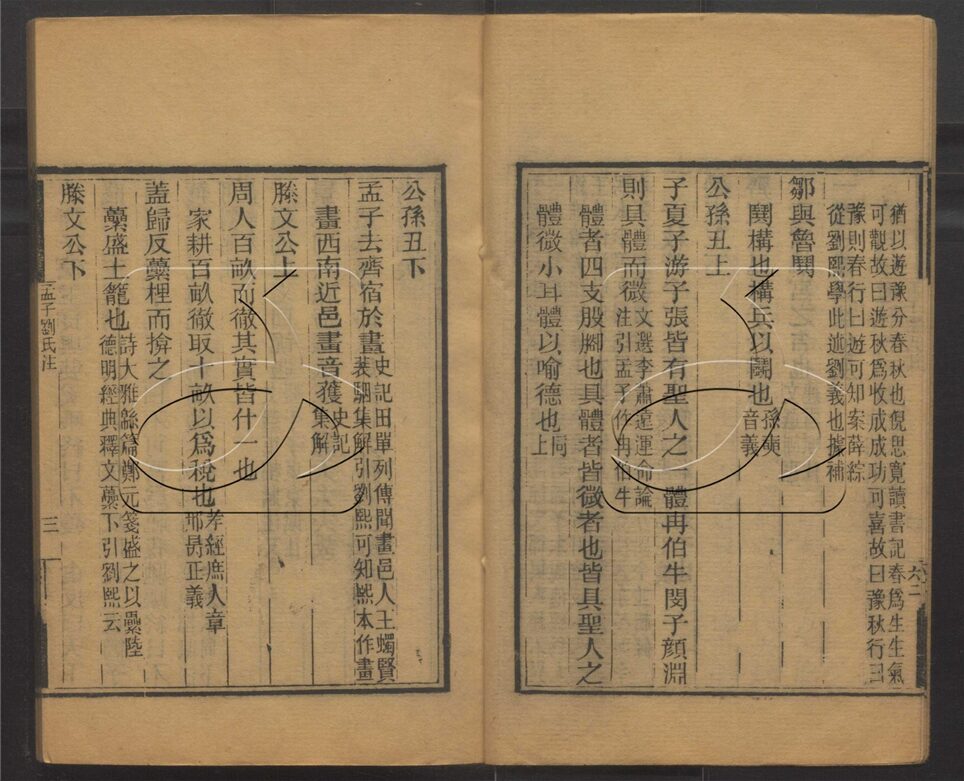 猶以遊豫分春秋也倪思寬讀書記春爲生生氣
可觀故曰遊秋爲收成成功可喜故曰豫秋行曰
豫則春行曰遊可知案薛綜
從劉熙學此遊劉義也據補
鄒與魯鬨
鬨構也構兵以鬭也孫奭音義
公孫丑上
子夏子游子張皆有聖人之一體冉伯牛閔子顔淵
則具體而微文選李蕭遠運命論注引孟子作冉伯牛
體者四支股腳也具體者皆微者也皆具聖人之
體微小耳體以喻德也同上
公孫丑下
孟子去齊宿於晝史記田單列傳聞畫邑人王蠋賢裴駰集解引劉熙可知熙本作畫
畫西南近邑畫音獲史記集解
滕文公上
周人百畝而徹其實皆什一也
家耕百畝徹取十畝以爲稅也孝經庶人章邢昺正義
蓋歸反虆梩而揜之
虆盛土籠也詩大雅緜篇鄭元箋盛之以虆陸德明經典釋文虆下引劉熙云
滕文公下
孟子劉氏注
三